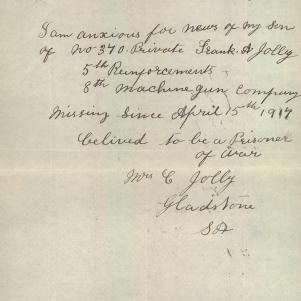 I am anxious for news of my son
of No 370 Private Frank A Jolly
5th Reinforcements
8th Machine Gun Company
Missing Since April 15th 1917
belived to be a Prisoner
of War
Mrs C Jolly
Gladstone
SA